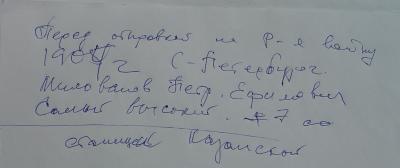 Перед отправкой на Р-я войну
1904 г С-Петербург.
Милованов Петр. Ефимович
Самый высокий. 7
станицы Казанской